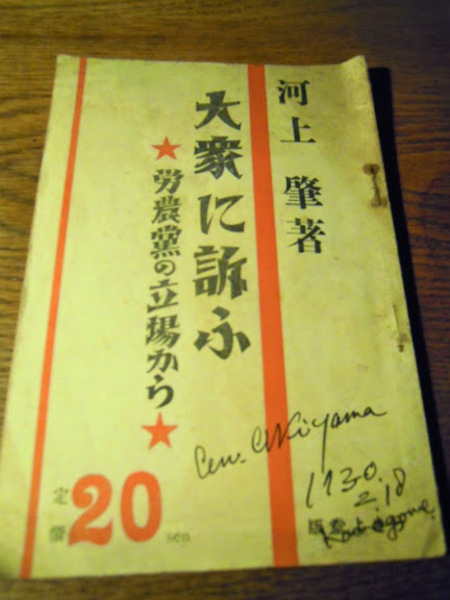 河上 肇著
大衆に訴ふ
★労農黨の立場から★
定價 20 sen
Akiyama
1930.
2.18